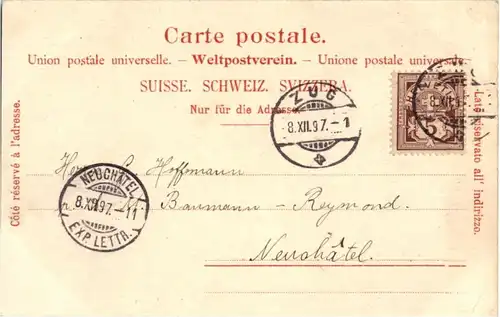 Carte postale.
Union postale universelle. – Weltpostverein. – Unione postale universale.
SUISSE. SCHWEIZ. SVIZZERA.
Nur für die Adresse.
Côté réservé à l'adresse.
Lato riservato all' indirizzo.
ZUG
8.XII.97.–1
5
NEUCHÂTEL
8.XII.97.–11
EXP. LETTR.
Herrn Hoffmann
Baumann-Reymond.
Neuchâtel.